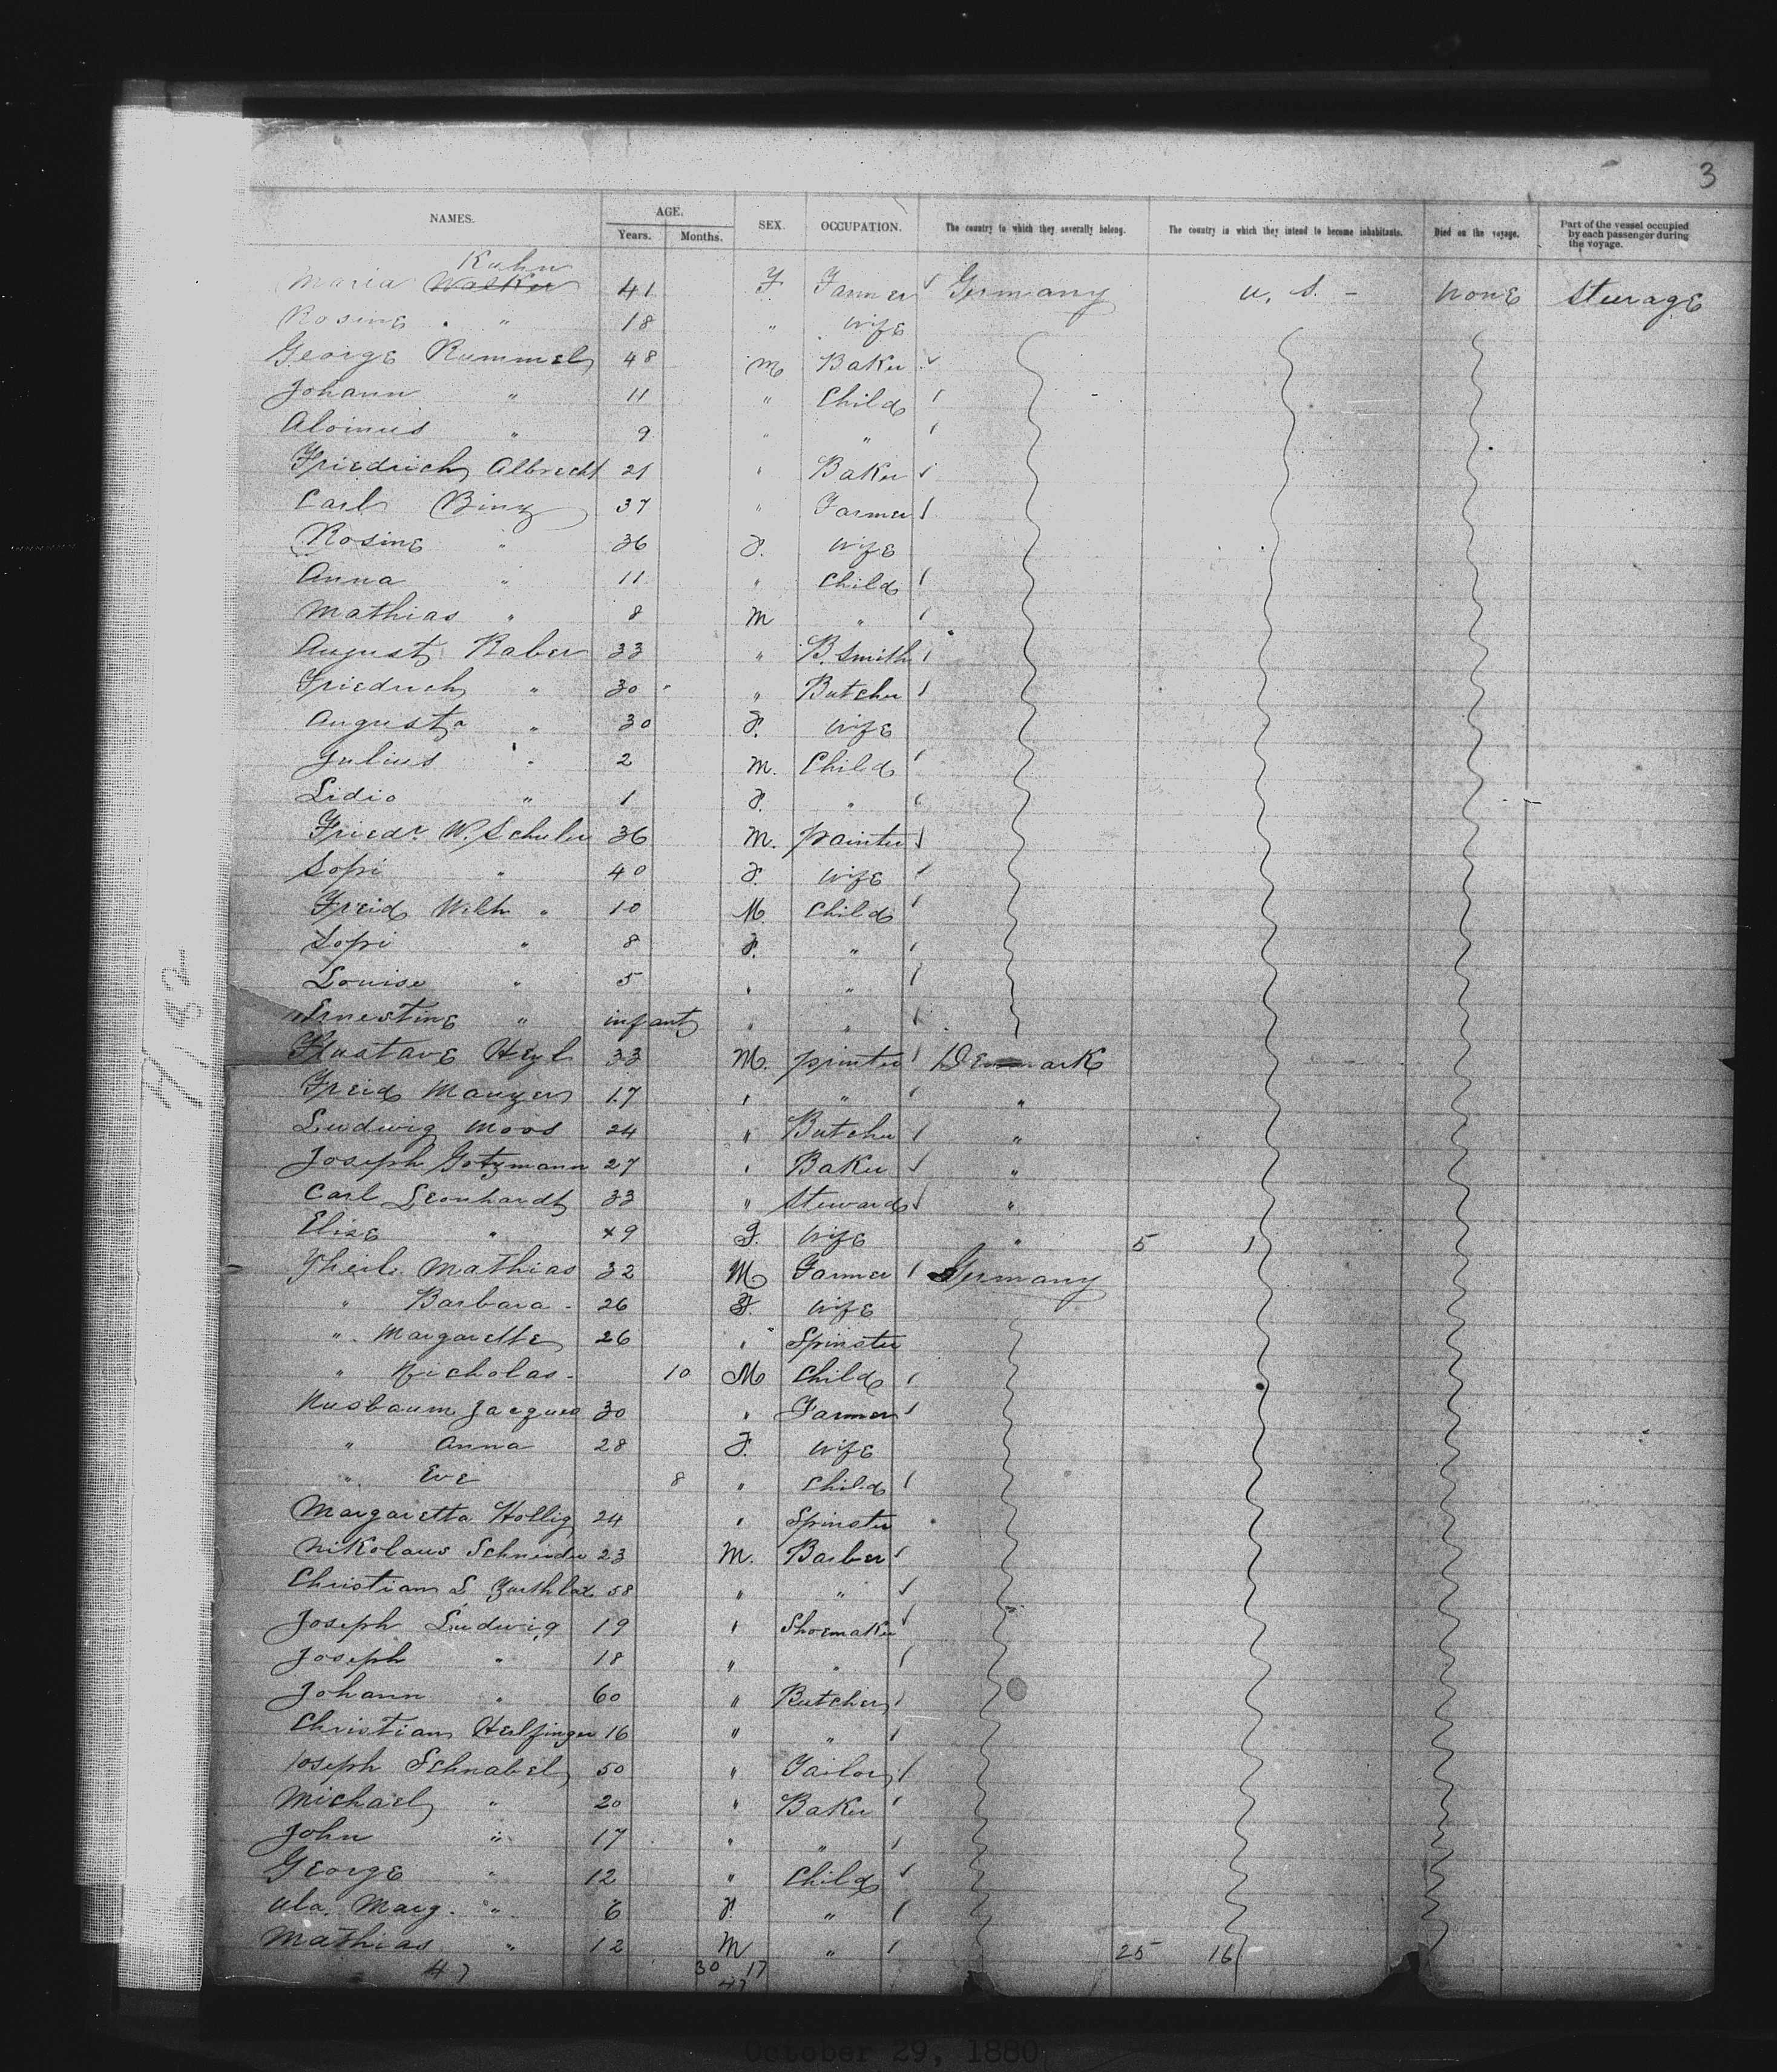 3
NAMES. AGE. SEX. OCCUPATION. The country to which they severally belong. The country in which they intend to become inhabitants. Died on the voyage. Part of the vessel occupied by each passenger during the voyage.
Years. Months.
Kuhn
Maria Walker 41 F Farmer Germany U. S. - none Steerage
Rosine " 18 " wife
George Rummel 48 M Baker
Johann " 11 " Child
Aloinus " 9 " "
Friedrich Albrecht 21 " Baker
Carl Binz 37 " Farmer
Rosine " 36 F. wife
Anna " 11 " Child
Mathias " 8 M "
August Raber 33 " B. Smith
Friedrich " 30 " Butcher
Augusta " 30 F. wife
Julius " 2 M. Child
Lidio " 1 F. "
Friedr. W. Schuler 36 M. painter
Sopi " 40 F. wife
Freid Wilh " 10 M Child
Sopi " 8 F. "
Louise " 5 " "
Ernestine " infant " "
Gustave Heyl 33 M. printer Denmark
Freid Mauyer 17 " " "
Ludwig Moos 24 " Butcher "
Joseph Gotzmann 27 " Baker "
Carl Leonhardt 33 " Steward "
Elise " 49 F. wife " 5 1
Theile Mathias 32 M Farmer Germany
" Barbara - 26 F. wife
" Margarethe 26 " Spinster
" Nicholas - 10 M Child
Nusbaum Jacques 30 " Farmer
" Anna 28 F. wife
" Eve 8 " Child
Margaretta Hollig 24 " Spinster
Nikolaus Schneider 23 M. Barber
Christian L 58 " "
Joseph Ludwig 19 " Shoemaker
Joseph " 18 " "
Johann " 60 " Butcher
Christian Helfinger 16 " "
Joseph Schnabel 50 " Tailor
Michael " 20 " Baker
John " 17 " "
George " 12 " Child
Ula. Marg. " 6 F. "
Mathias " 12 M " 25 16
47 30 17
47
October 29, 1880